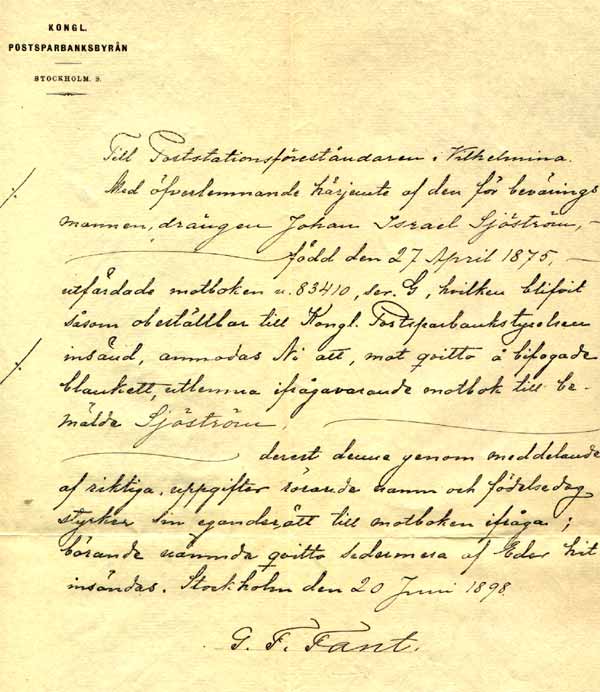 KONGL.
POSTSPARBANKSBYRÅN
STOCKHOLM. 9.
Till Poststationsföreståndaren i Vilhelmina.
Med öfverlemnande härjemte af den för bevärings
mannen, drängen Johan Israel Sjöström, –
född den 27 April 1875, –
utfärdade motboken n. 83410, ser. G, hvilken blifvit
såsom obeställbar till Kongl. Postsparbanksstyrelsen
insänd, anmodas Ni att, mot qvitto å bifogade
blankett, utlemna ifrågavarande motbok till be-
mälde Sjöström,
derest denne genom meddelande
af riktiga uppgifter rörande namn och födelsedag
styrker sin eganderätt till motboken ifråga;
börande nämnda qvitto sedermera af Eder hit
insändas. Stockholm den 20 Juni 1898.
G. F. Fant.